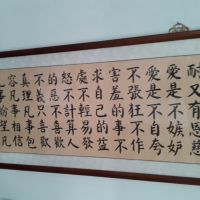 耐又有恩慈
愛是不嫉妒
愛是不自誇
不張狂不作
害羞的事不
求自己的益
處不輕易發
怒不計算人
的惡不喜歡
不義只喜歡
真理凡事包
容凡事相信
盼望